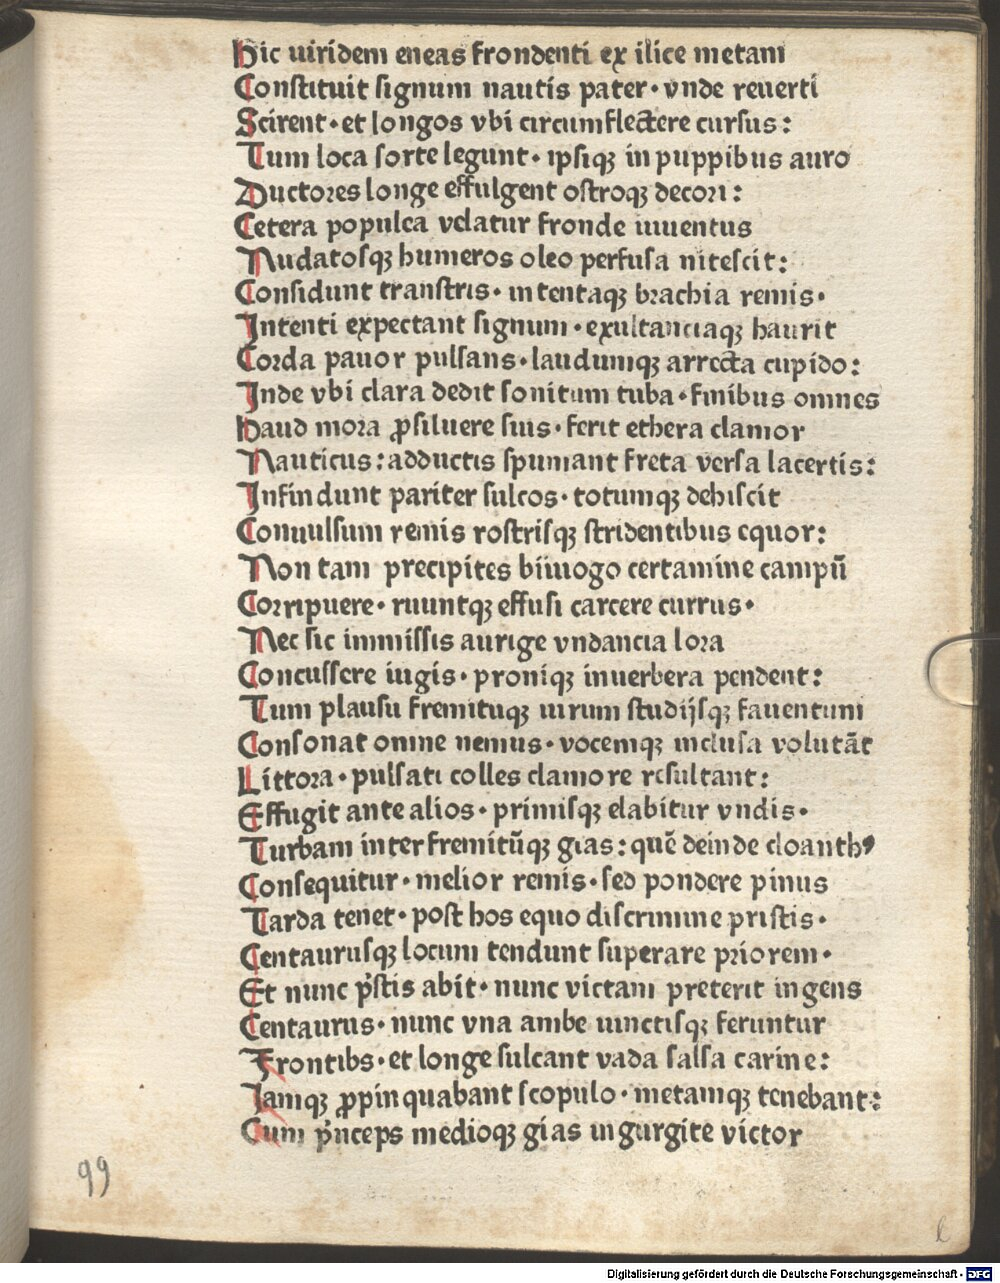 Hic uiridem eneas frondenti ex ilice metam
Constituit signum nautis pater · vnde reuerti
Scirent · et longos vbi circumflectere cursus :
Tum loca sorte legunt · ipsiqꝫ in puppibus auro
Ductores longe effulgent ostroqꝫ decori :
Cetera populea velatur fronde iuuentus
Nudatosqꝫ humeros oleo perfusa nitescit :
Considunt transtris · intentaqꝫ brachia remis ·
Intenti expectant signum · exultanciaqꝫ haurit
Corda pauor pulsans · laudumqꝫ arrecta cupido :
Inde vbi clara dedit sonitum tuba · finibus omnes
Haud mora ꝓsiluere suis · ferit ethera clamor
Nauticus : adductis spumant freta versa lacertis :
Infindunt pariter sulcos · totumqꝫ dehiscit
Conuulsum remis rostrisqꝫ stridentibus equor :
Non tam precipites biiuogo certamine campū
Corripuere · ruuntqꝫ effusi carcere currus ·
Nec sic immissis aurige vndancia lora
Concussere iugis · proniqꝫ inuerbera pendent :
Tum plausu fremituqꝫ uirum studijsqꝫ fauentum
Consonat omne nemus · vocemqꝫ inclusa volutāt
Littora · pulsati colles clamore resultant :
Effugit ante alios · primisqꝫ elabitur vndis ·
Turbam inter fremitūqꝫ gias : quē deinde cloanthꝰ
Consequitur · melior remis · sed pondere pinus
Tarda tenet · post hos equo discrimine pristis ·
Centaurusqꝫ locum tendunt superare priorem ·
Et nunc p̓stis abit · nunc victam preterit ingens
Centaurus · nunc vna ambe iunctisqꝫ feruntur
Frontibs · et longe sulcant vada salsa carine :
Iamqꝫ ꝓpinquabant scopulo · metamqꝫ tenebant :
Cum p̓nceps medioqꝫ gias in gurgite victor
99
l
Digitalisierung gefördert durch die Deutsche Forschungsgemeinschaft - DFG